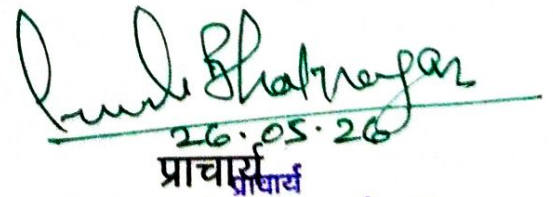 Bhatnagar
26.05.26
प्राचार्य
प्राचार्य